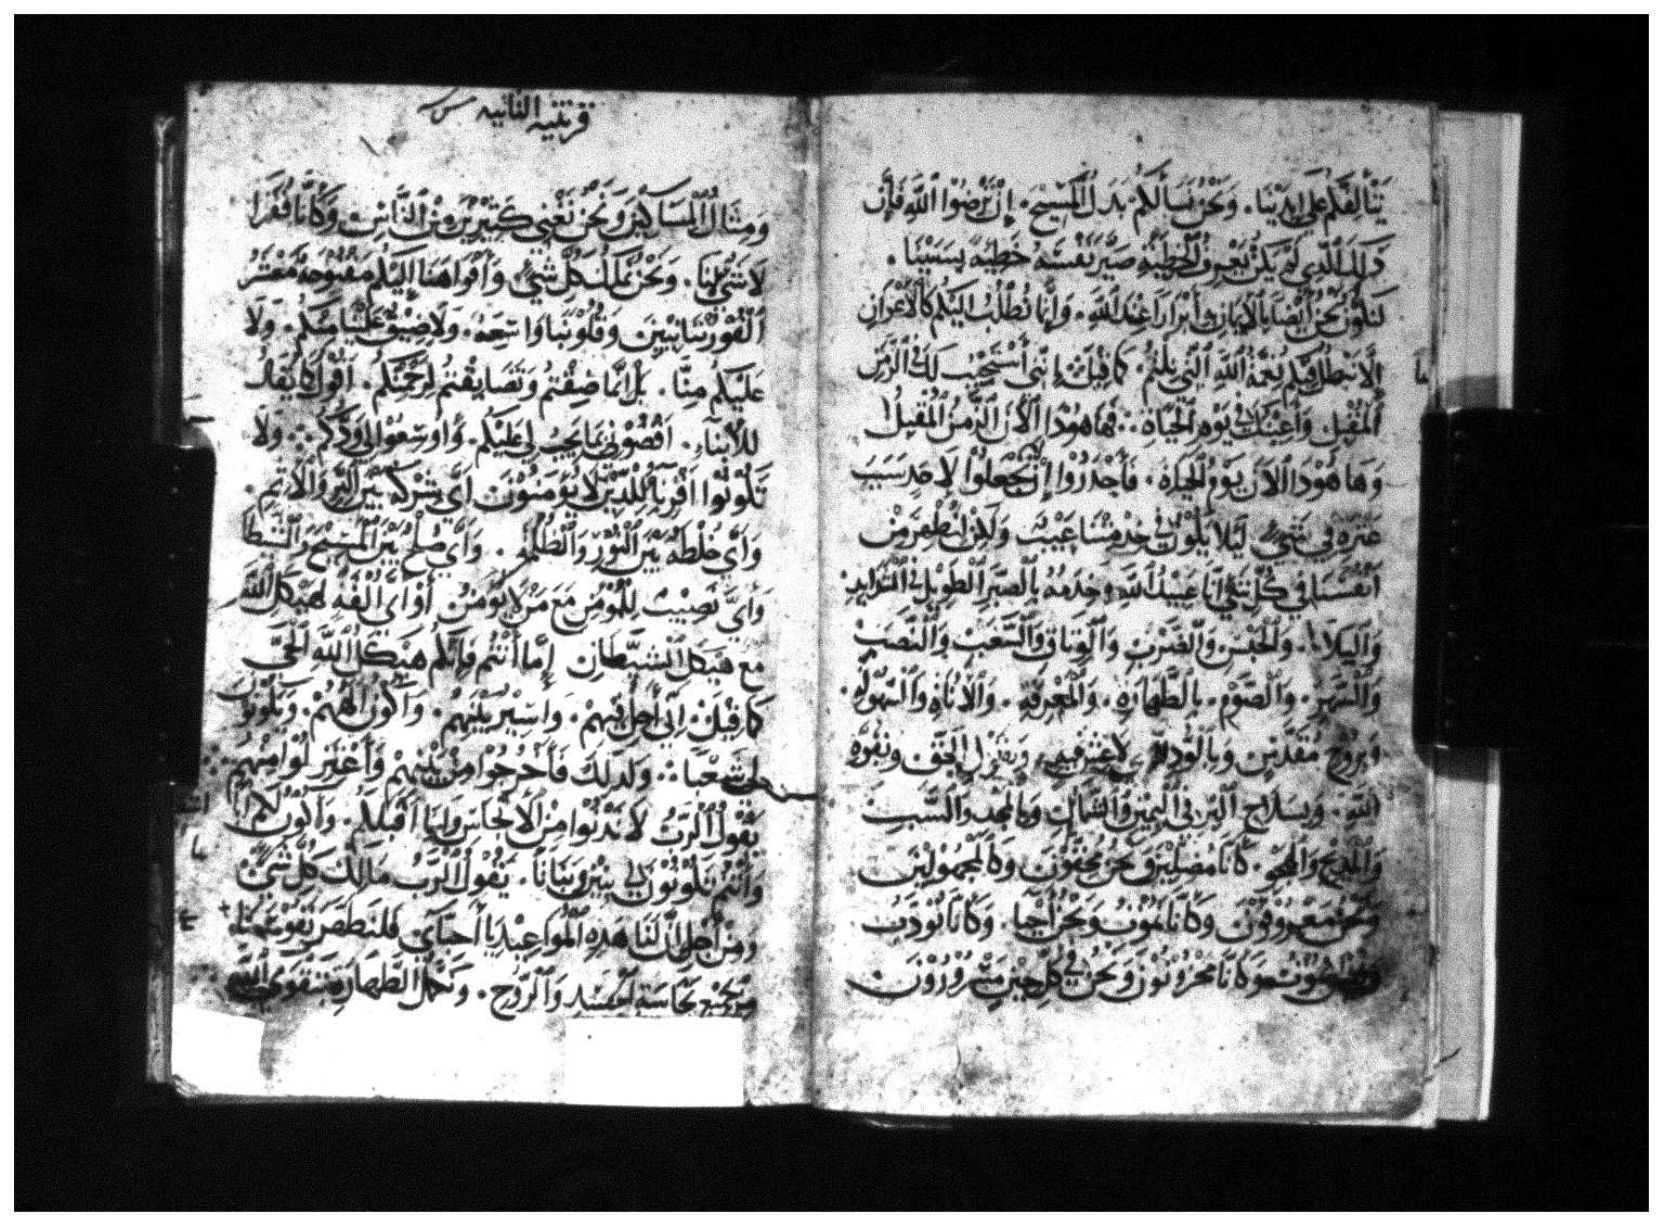 يتألفكم على ايدينا. ونحن نسألكم بدل المسيح. إن ترضوا الله فإن
ذلك الذي لم يكن يعرف الخطية صير نفسه خطيه بسببنا.
لنكون نحن ايضا بالايمان أبرارا عند الله. وانما نطلب اليكم كالاعوان
الا تبطل فيكم نعمة الله التي نلتم. كما قيل إنني أستجيب لك في الزمن
ما
المقبل. وأعينك في يوم الحياة. فها هوذا الأن الزمن المقبل
وها هوذا الان يوم الحياه. فأحذروا إن تجعلوا لاحد سبب
عثره في شيء ليلا يكون في خدمتنا عيب ولكن لنظهر من
أنفسنا في كل شي انا عبيد لله وخدمه بالصبر الطويل في الشدايد
والبلايا. والحبس والضرب والوثاق والتعب والنصب
والسهر. والصوم. بالطهاره. والمعرفه. والاناه والسهوله.
وبروح مقدس وبالود لا غش فيه. وبقول الحق وبقوه
الله. وبسلاح البر في اليمين والشمال وبالمجد والسب
والمديح والهجو. كأنا مضلين ونحن محقون وكالمجهولين
ونحن معروفون وكأنا نموت ونحن أحيا. وكأنا نودب
كأنا محزونون ونحن في كل حين مسرورون
قرنتيه الثانيه
ومثال المساكين ونحن نغني كثيرين من الناس وكأنا فقرا
لا شي لنا. ونحن نملك كل شي. وأفواهنا إليكم مفتوحة معشر
القورنثانيين وقلوبنا واسعة. ولا ضيق علينا منكم. ولا
عليكم منا. بل انما ضقتم وتضايقتم لرحمتكم. أقول كما يقال
للأبناء. اقضوني بما يجب لي عليكم. وأوسعوا لي ودكم. ولا
تكونوا اقرباء للذين لا يومنون أي شركه بين البر والاثم.
وأي خلطه بين النور والظلمه. وأي صلح بين المسيح والشيطا
وأي نصيب للمومن مع من لا يومن أو أي الفه لهيكل الله
مع هيكل الشيطان إما أنتم فإنكم هيكل الله الحي
كما قيل. إني أحل فيهم. واسير بينهم. وأكون الههم. ويكونون
لي شعبا. ولذلك فأخرجوا من بينهم وأعتزلوا منهم
يقول الرب لا تدنوا من الأنجاس وانا اقبلكم. وأكون لكم أبا
وأنتم تكونون لي بنين وبناتا. يقول الرب مالك كل شي
ومن أجل ان لنا هذه المواعيد يا أحباي فلنطهر نفوسنا
من جميع نجاسة الجسد والروح. ونكمل الطهاره بتقوى الله